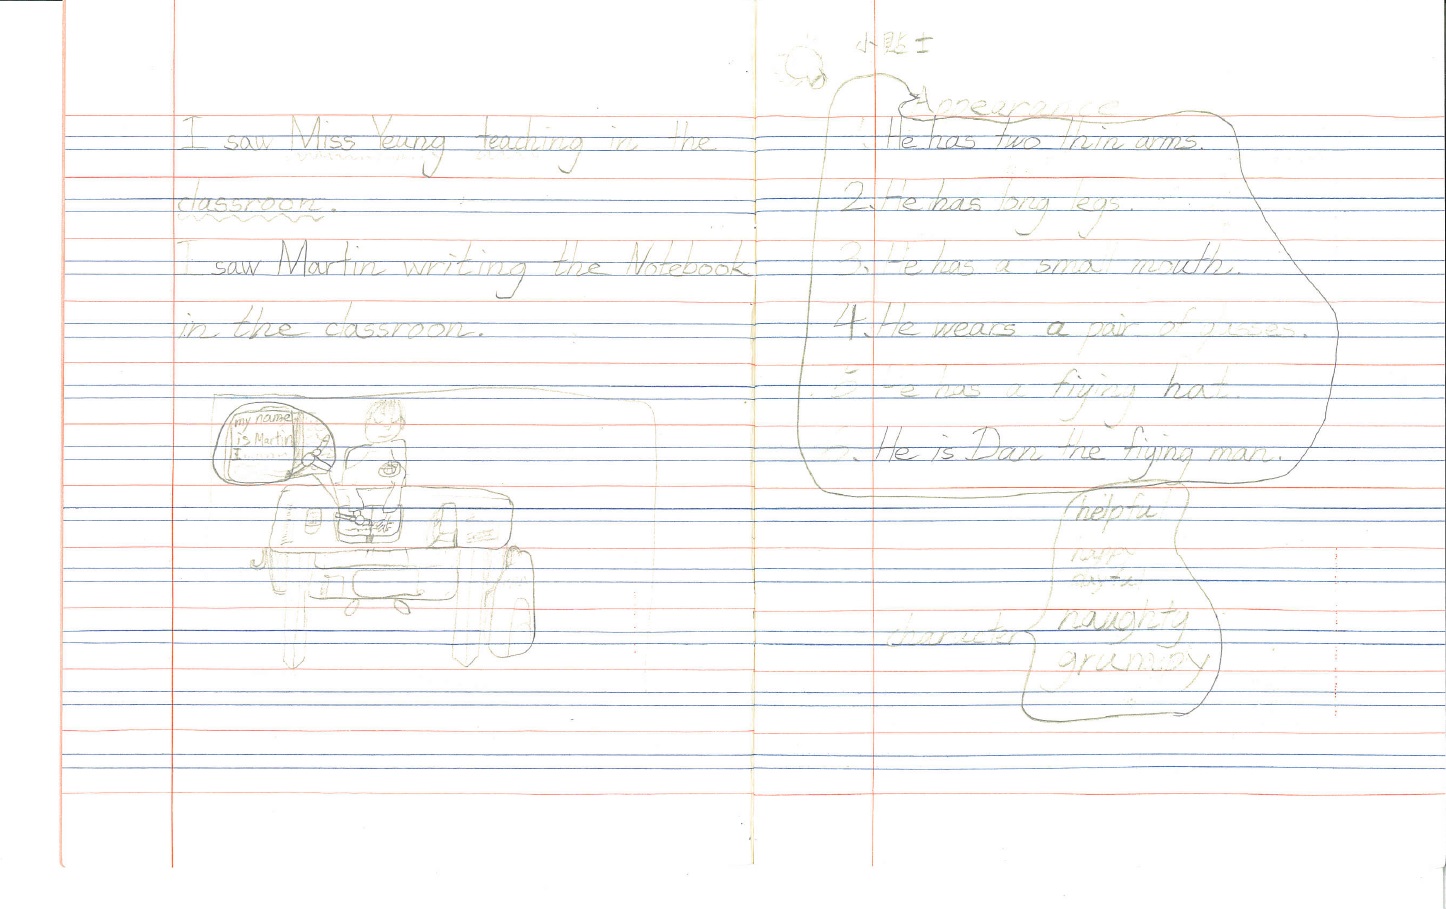 I saw Miss Yeung teaching in the
classroon.
I saw Martin writing the Notebook
in the classroon.
my name
is Martin
I
小貼士
Appearance
1. He has two thin arms.
2. He has long legs.
3. He has a small mouth.
4. He wears a pair of glasses.
5. He has a fiying hat.
He is Dan the fiying man.
helpful
happy
character
naughty
grumpy